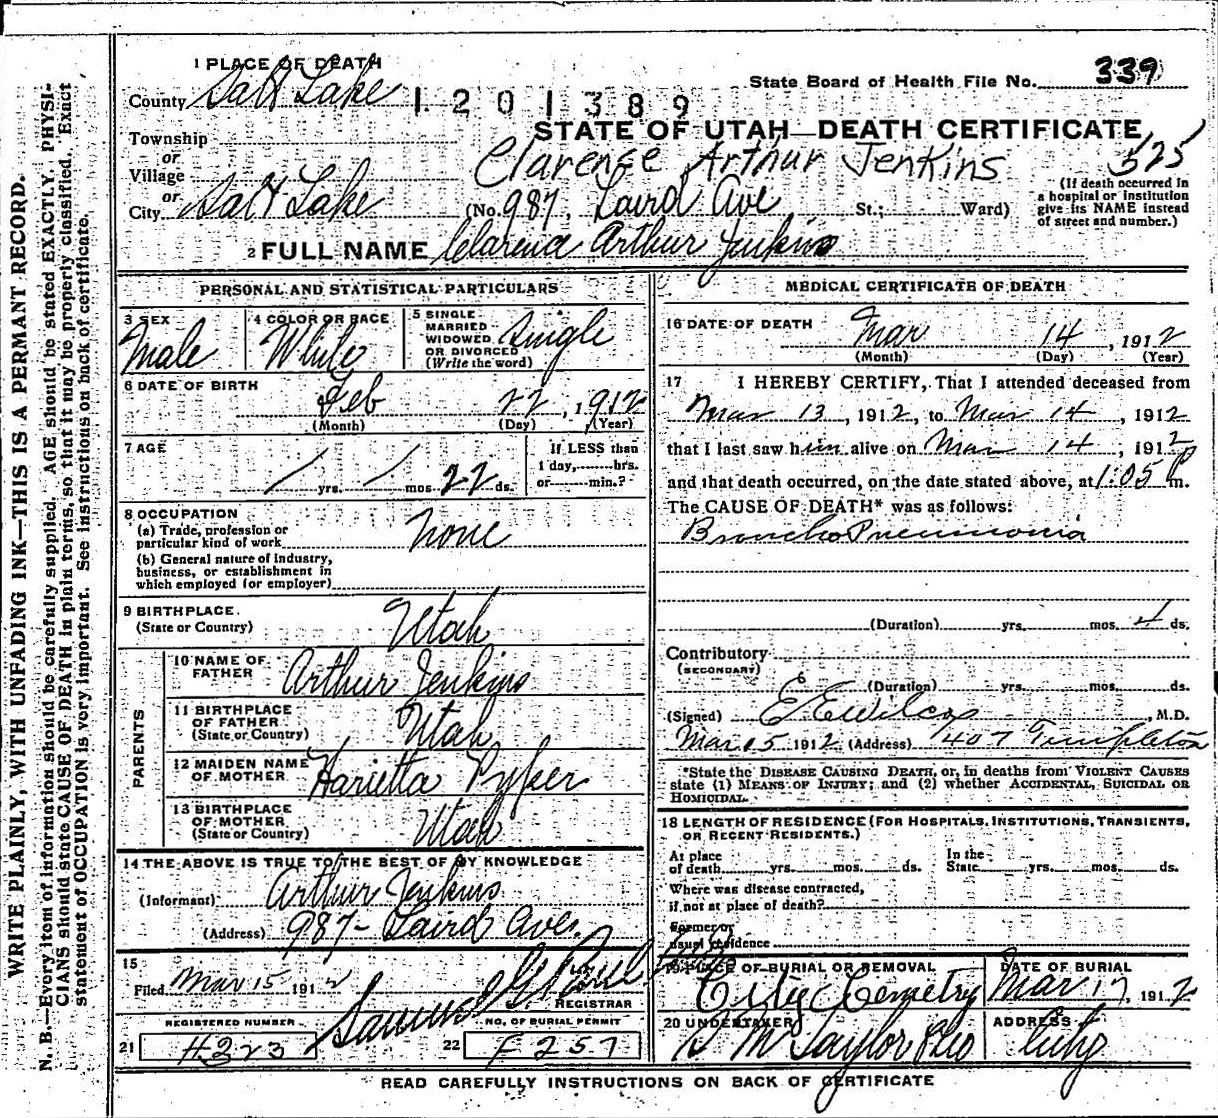 1 PLACE OF DEATH
County Salt Lake
1201389
State Board of Health File No. 339
STATE OF UTAH—DEATH CERTIFICATE
Township
or
Village
or
City Salt Lake
Clarence Arthur Jenkins
525
(No. 987, Laird Ave St.; Ward)
(If death occurred in
a hospital or institution
give its NAME instead
of street and number.)
2 FULL NAME Clarence Arthur Jenkins
PERSONAL AND STATISTICAL PARTICULARS
3 SEX
Male
4 COLOR OR RACE
White
5 SINGLE
MARRIED
WIDOWED
OR DIVORCED
(Write the word)
Single
6 DATE OF BIRTH
Feb 22, 1912
(Month) (Day) (Year)
7 AGE
/ yrs. / mos. 22 ds.
If LESS than
1 day, hrs.
or min.?
8 OCCUPATION
(a) Trade, profession or
particular kind of work None
(b) General nature of industry,
business, or establishment in
which employed (or employer)
9 BIRTHPLACE.
(State or Country) Utah
PARENTS
10 NAME OF
FATHER Arthur Jenkins
11 BIRTHPLACE
OF FATHER
(State or Country) Utah
12 MAIDEN NAME
OF MOTHER Harietta Pyper
13 BIRTHPLACE
OF MOTHER
(State or Country) Utah
14 THE ABOVE IS TRUE TO THE BEST OF MY KNOWLEDGE
(Informant) Arthur Jenkins
(Address) 987- Laird Ave.
15
Filed Mar 15 1912
Samuel G. Paul
REGISTRAR
REGISTERED NUMBER
21 H323
NO. OF BURIAL PERMIT
22 F257
MEDICAL CERTIFICATE OF DEATH
16 DATE OF DEATH Mar 14, 1912
(Month) (Day) (Year)
17 I HEREBY CERTIFY, That I attended deceased from
Mar 13, 1912, to Mar 14, 1912
that I last saw him alive on Mar 14, 1912
and that death occurred, on the date stated above, at 1:05 P m.
The CAUSE OF DEATH* was as follows:
Broncho Pneumonia
(Duration) yrs. mos. 4 ds.
Contributory
(SECONDARY)
(Duration) yrs. mos. ds.
(Signed) E E Wilcox, M.D.
Mar 15 1912 (Address) 407 Templeton
*State the DISEASE CAUSING DEATH, or, in deaths from VIOLENT CAUSES
state (1) MEANS OF INJURY; and (2) whether ACCIDENTAL, SUICIDAL OR
HOMICIDAL.
18 LENGTH OF RESIDENCE (FOR HOSPITALS, INSTITUTIONS, TRANSIENTS,
OR RECENT RESIDENTS.)
At place
of death yrs. mos. ds.
In the
State yrs. mos. ds.
Where was disease contracted,
if not at place of death?
Former or
usual residence
19 PLACE OF BURIAL OR REMOVAL
City Cemetry
DATE OF BURIAL
Mar 17, 1912
20 UNDERTAKER
S M Taylor & Co
ADDRESS
City
READ CAREFULLY INSTRUCTIONS ON BACK OF CERTIFICATE
WRITE PLAINLY, WITH UNFADING INK—THIS IS A PERMANT RECORD.
N. B.—Every item of information should be carefully supplied. AGE should be stated EXACTLY. PHYSI-
CIANS should state CAUSE OF DEATH in plain terms, so that it may be properly classified. Exact
statement of OCCUPATION is very important. See instructions on back of certificate.